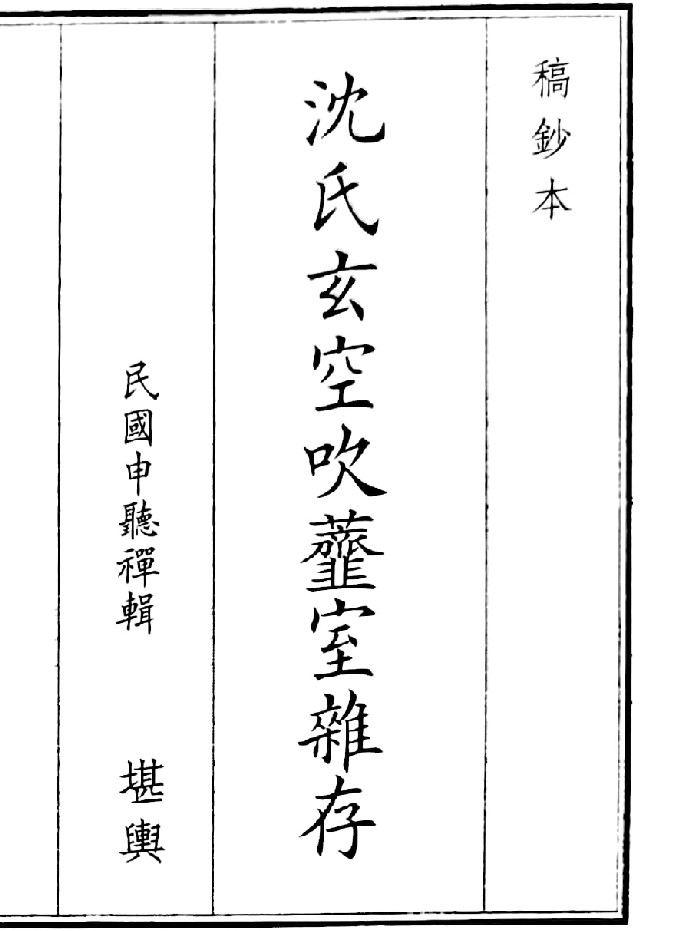 稿鈔本
沈氏玄空吹虀室雜存
民國申聽禪輯　堪輿